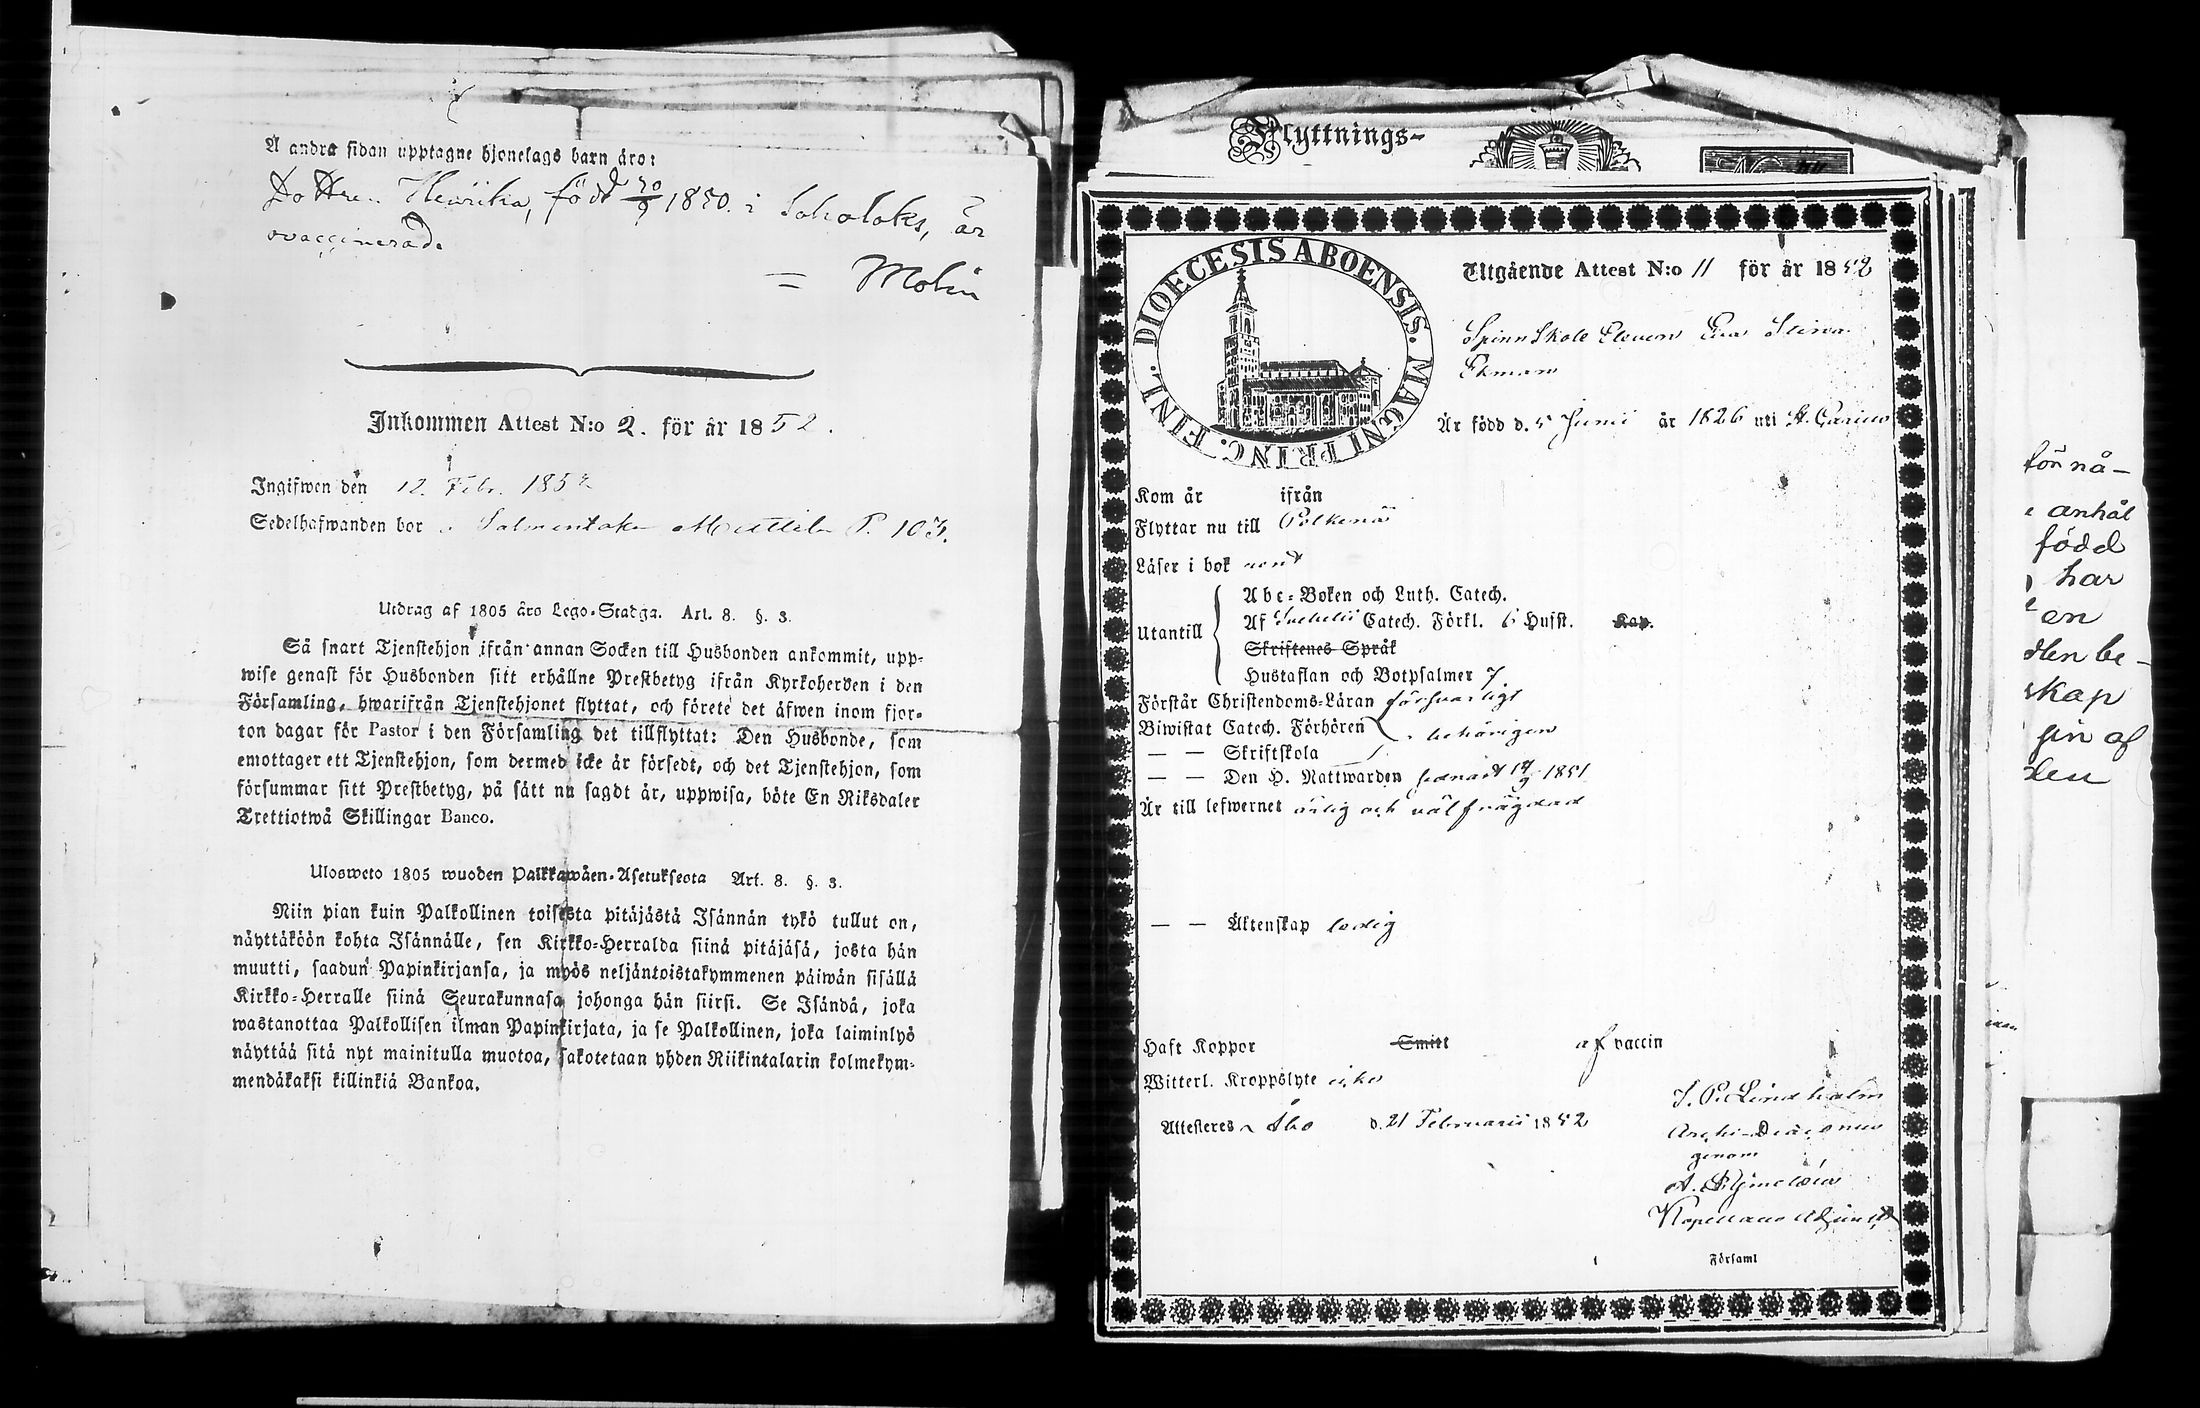 Å andra sidan upptagne hjonelags barn äro:
Dottren Henrika, född 20/9 1850. i Saholaks, är
ovaccinerade
= Molin
Inkommen Attest N:o 2. för år 1852.
Ingifwen den 12. Febr. 1852
Sedelhafwanden bor i Salmentaka Mattila P. 103.
Utdrag af 1805 års Lego-Stadga. Art. 8. §. 3.
Så snart Tjenstehjon ifrån annan Socken till Husbonden ankommit, upp-
wise genast för Husbonden sitt erhållne Prestbetyg ifrån Kyrkoherden i den
Församling, hwarifrån Tjenstehjonet flyttat, och förete det äfwen inom fjor-
ton dagar för Pastor i den Församling det tillflyttat: Den Husbonde, som
emottager ett Tjenstehjon, som dermed icke är försedt, och det Tjenstehjon, som
försummar sitt Prestbetyg, på sätt nu sagdt är, uppwisa, böte En Riksdaler
Trettiotwå Skillingar Banco.
Ulosweto 1805 wuoden Palkkawäen-Asetuksesta Art. 8. §. 3.
Niin pian kuin Palkollinen toisesta pitäjästä Isännän tykö tullut on,
näyttäköön kohta Isännälle, sen Kirkko-Herralda siinä pitäjäsä, josta hän
muutti, saadun Papinkirjansa, ja myös neljäntoistakymmenen päiwän sisällä
Kirkko-Herralle siinä Seurakunnasa johonga hän siirsi. Se Isändä, joka
wastanottaa Palkollisen ilman Papinkirjata, ja se Palkollinen, joka laiminlyö
näyttää sitä nyt mainitulla muotoa, sakotetaan yhden Riikintalarin kolmekym-
mendäkaksi killinkiä Bankoa.
Flyttnings-
DIOECESIS ABOENSIS. MAGNI PRINC. FINL.
Utgående Attest N:o 11 för år 1852
SpinnSkole Eleven Eva Stina
Ekman
Är född d. 5 Junii år 1826 uti St. Carins
Kom år ifrån
Flyttar nu till Pelkenä
Läser i bok rent
Utantill
Abc-Boken och Luth. Catech.
Af Svebelii Catech. Förkl. 6 Hufst. Kap.
Skriftenes Språk
Hustaflan och Botpsalmer 7
Förstår Christendoms-Läran försvarligt
Biwistat Catech. Förhören behörigen
— — Skriftskola
— — Den H. Nattwarden sednast 14/9 1851
Är till lefwernet ärlig och välfrägdad
— — Äktenskap ledig
Haft Koppor Smitt af vaccin
Witterl. Kroppslyte icke
Attesteres Åbo d. 21 Februarii 1852
J. P. Lindholm
Archi-Diaconus
genom
Kapellans Adjunkt
Församl
för nå-
anhål
född
har
en
dlen be-
skap
gin af
den